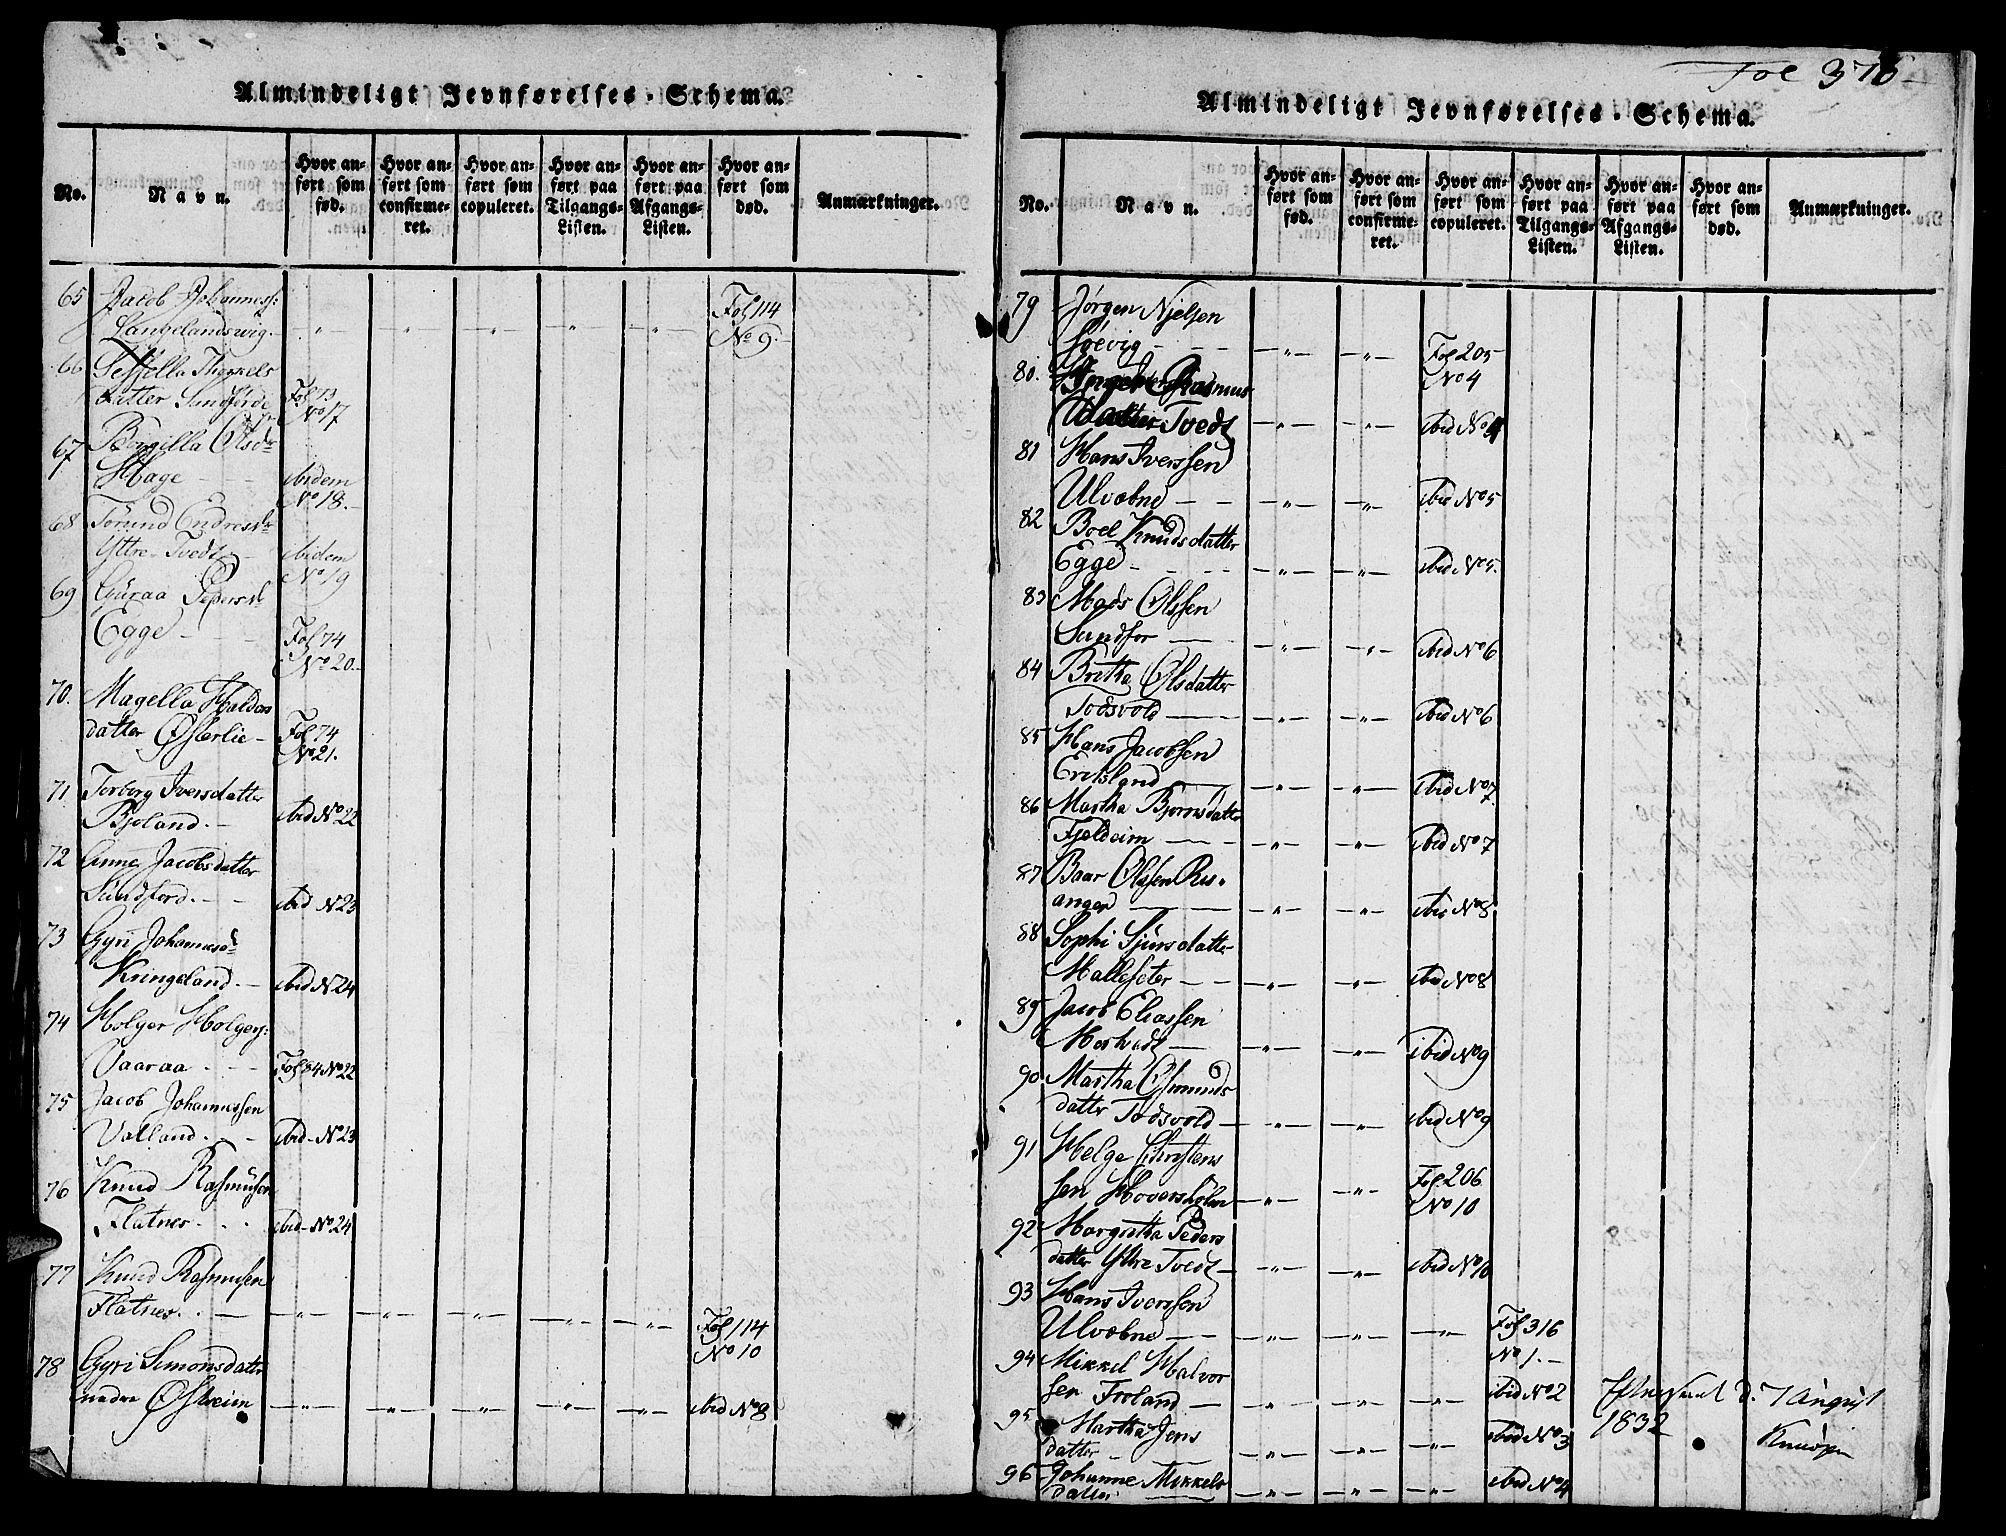 Almindeligt Jevnførelses-Schema.
No.
Navn.
Hvor an-
ført som
fød.
Hvor an-
ført som
confirme-
ret.
Hvor an-
ført som
copuleret.
Hvor an-
ført paa
Tilgangs-
Listen.
Hvor an-
ført paa
Afgangs-
Listen.
Hvor an-
ført som
død.
Anmærkninger.
65 Jacob Johanness: Fol 114
Langelandsvig. - " - " - " - " - " - No 9.
66 Thorkels
datter Sundførde Fol 73
No 17
67 Borgilla Olsdr
Hage - - ibidem
No 18.
68 Törund Endresdr
Yttre Tvedt - ibidem
No 19
69 Guraa Pedersdr
Egge - - Fol 74
No 20.
70. Magella Haldors
datter Østerlie - Fol 74
No 21.
71 Torborg Iversdatter
Bjoland. - ibid No 22
72 Anne Jacobsdatter
Sundford. - - ibid No 23
73 Gyri Johannesdr
Kringeland. - ibid No 24
74 Holger Holgers:
Vaaraa - - Fol 34 No 22
75 Jacob Johannessen
Valland. - - ibid - No 23
76 Knud Rasmusen
Flatnes. - - ibid - No 24
77 Knud Rasmusen
Flatnes. - - " - " - " - " - " - Fol 114
No 10
78 Gyri Simonsdatter
nedre Østreim - " - " - " - " - " - ibid No 8
Fol 376
Almindeligt Jevnførelses-Schema.
No.
Navn.
Hvor an-
ført som
fød.
Hvor an-
ført som
confirme-
ret.
Hvor an-
ført som
copuleret.
Hvor an-
ført paa
Tilgangs-
Listen.
Hvor an-
ført paa
Afgangs-
Listen.
Hvor an-
ført som
død.
Anmærkninger.
79 Jørgen Njelsen
Søevig - - " - " - Fol 205
No 4
80. Rasmus
datter Tvedt - " - " - ibid No 4
81 Hans Iverssen
Ulvebne - - " - " - ibid No 5
82 Boel Knudsdatter
Egge - - " - " - ibid No 5.
83 Mads Olssen
Sundfor - " - " - ibid No 6
84 Britha Olsdatter
Todsvold - " - " - ibid No 6
85 Hans Jacobsen
Eriksland - " - " - ibid No 7
86 Martha Bjørnsdatter
Fjeldeim - " - " - ibid No 7
87 Baar Olssen Ris-
anger - " - " - ibid No 8
88 Sophi Sjursdatter
Halleseter - - " - " - ibid No 8
89 Jacob Eliassen
Mortvedt - " - " - ibid No 9
90 Martha Osmunds
datter Todsvold - " - " - ibid No 9
91 Helge Christens
sen Hovershølm - " - " - Fol 206
No 10
92 Margretha Peders
datter Yttre Tvedt - " - " - ibid No 10
93 Hans Iverssen
Ulvebne - - " - " - " - Fol 316
No 1. -
94 Mikkel Halvor
sen Froland - " - " - " - ibid No 2
d. 7 August
1832
95 Martha Jens
datter - " - " - " - ibid No 3
96 Johanne Mikkels
datter - " - " - " - ibid No 4